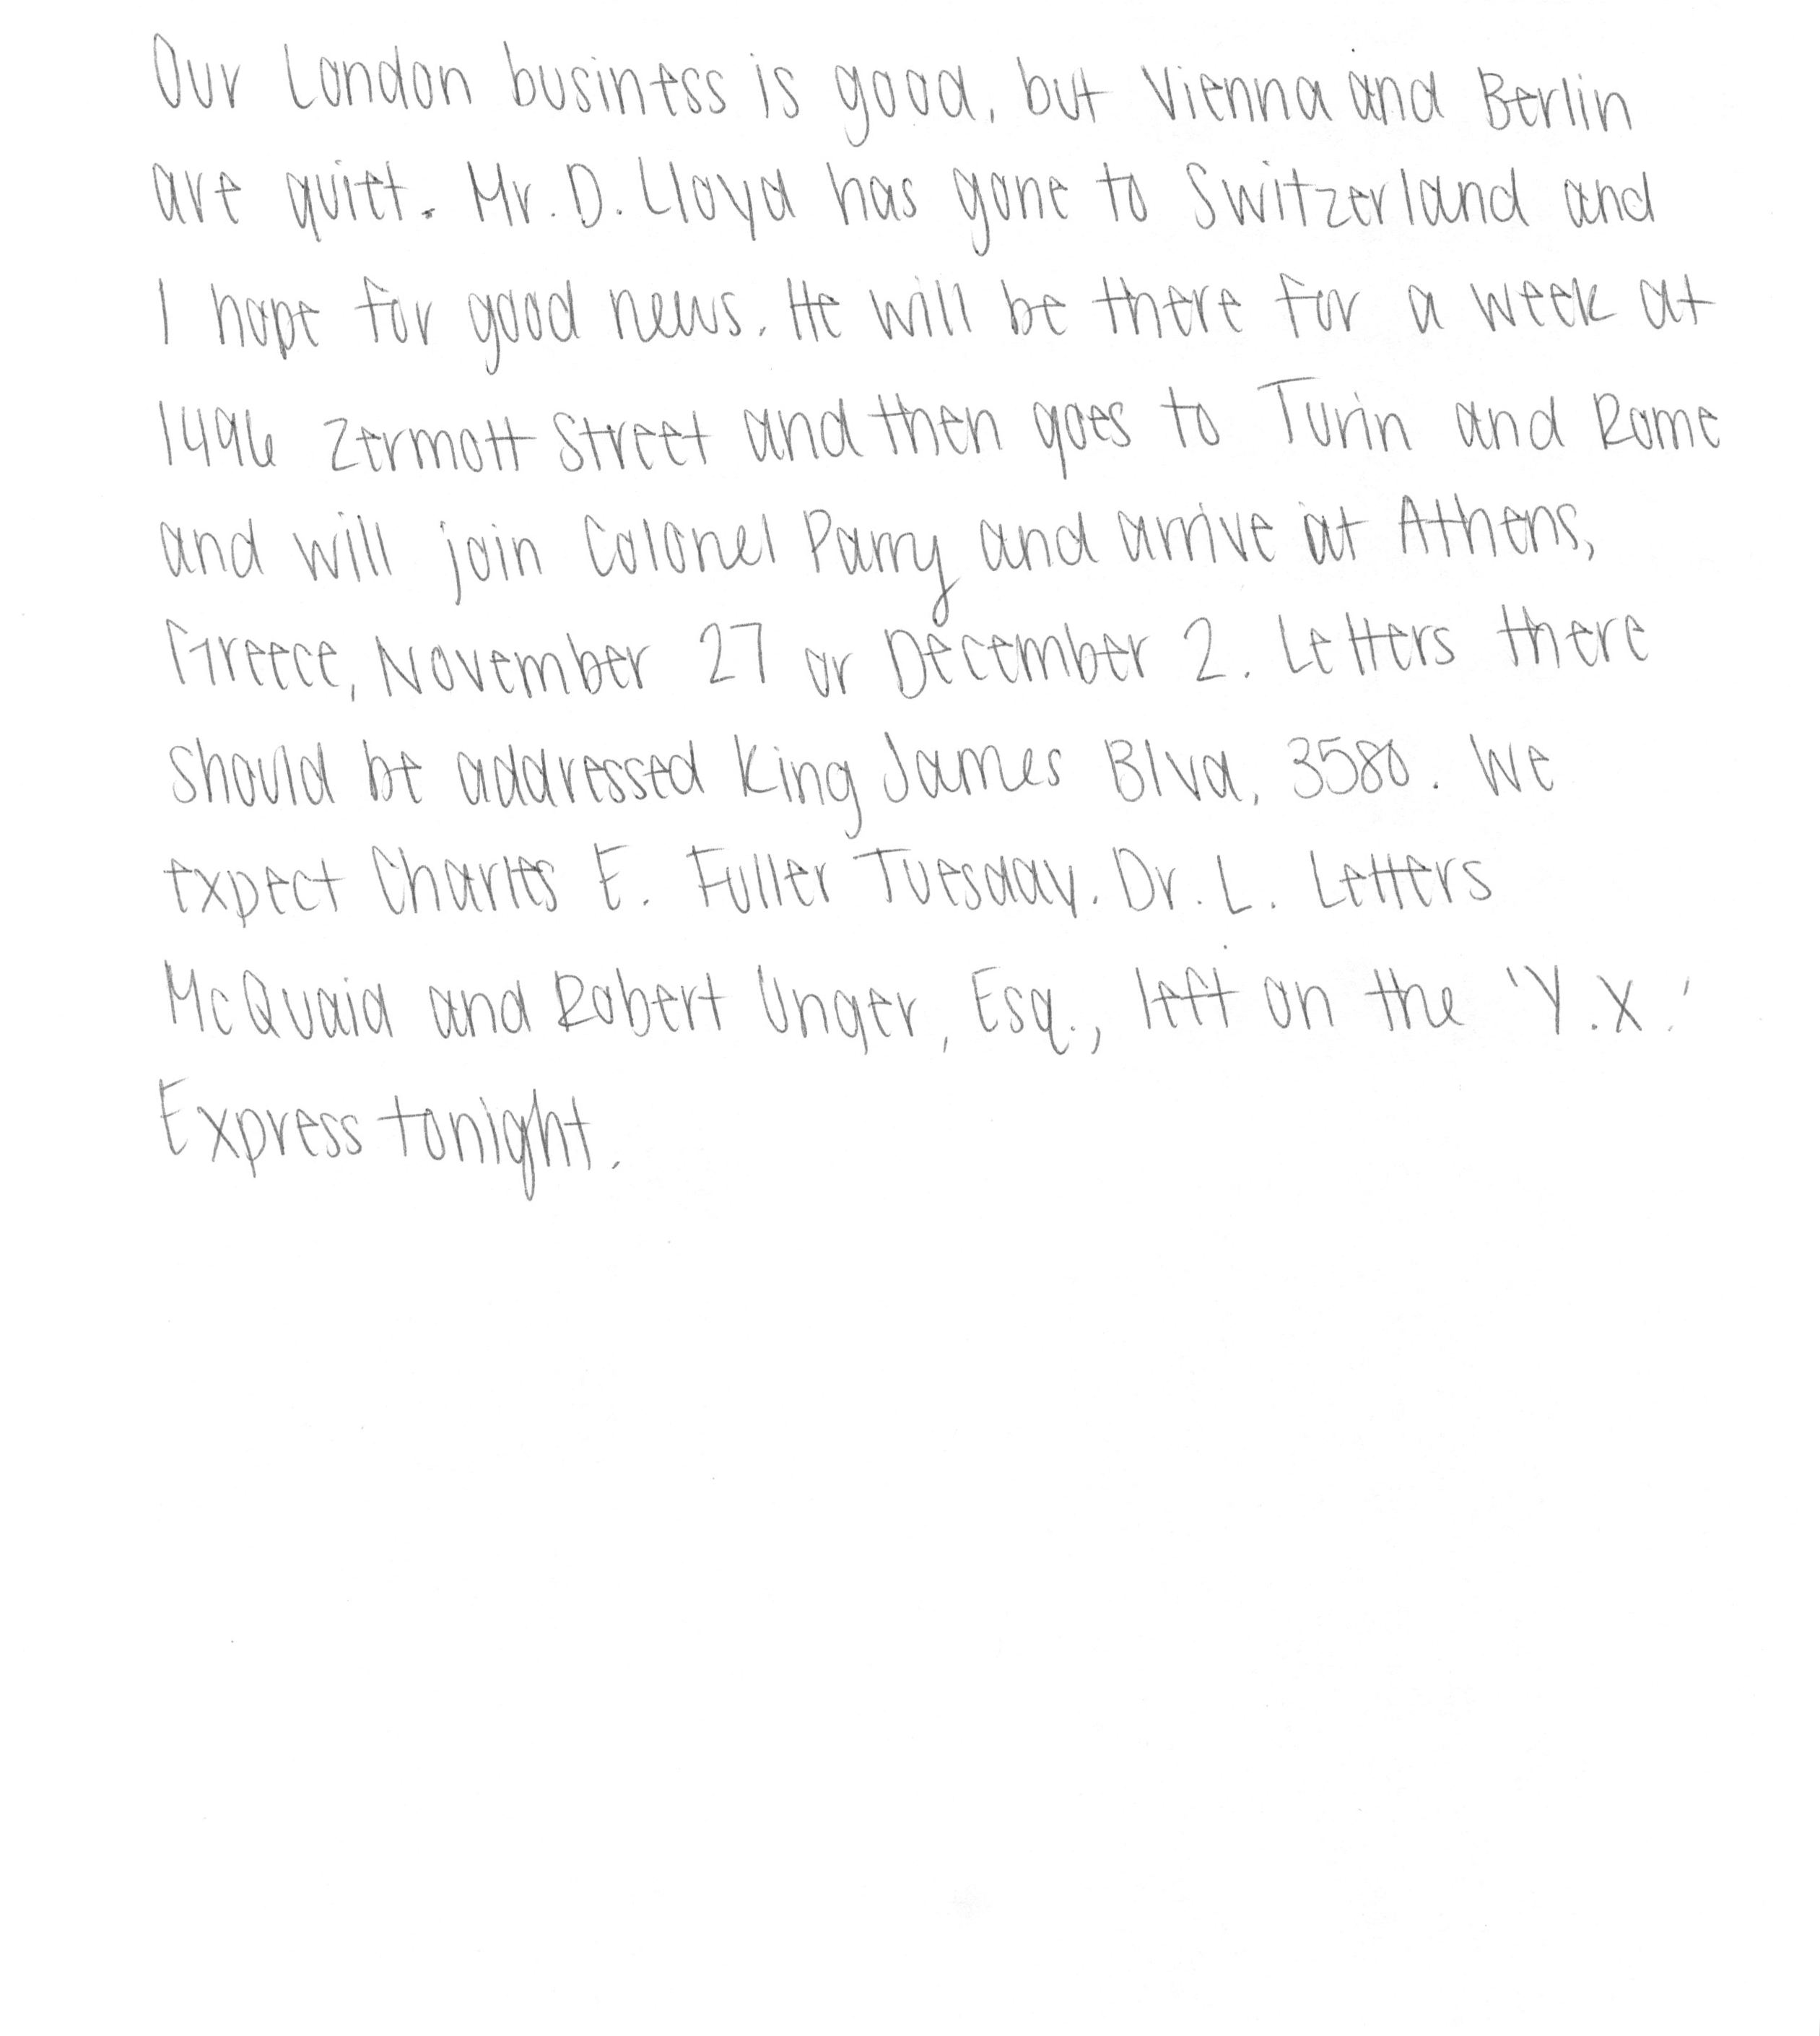 Our London business is good, but Vienna and Berlin
are quiet. Mr. D. Lloyd has gone to Switzerland and
I hope for good news. He will be there for a week at
1496 Zermott Street and then goes to Turin and Rome
and will join Colonel Parry and arrive at Athens,
Greece, November 27 or December 2. Letters there
should be addressed King James Blvd, 3580. We
expect Charles E. Fuller Tuesday. Dr. L. Letters
McQuaid and Robert Unger, Esq., left on the 'Y.X.'
Express tonight.